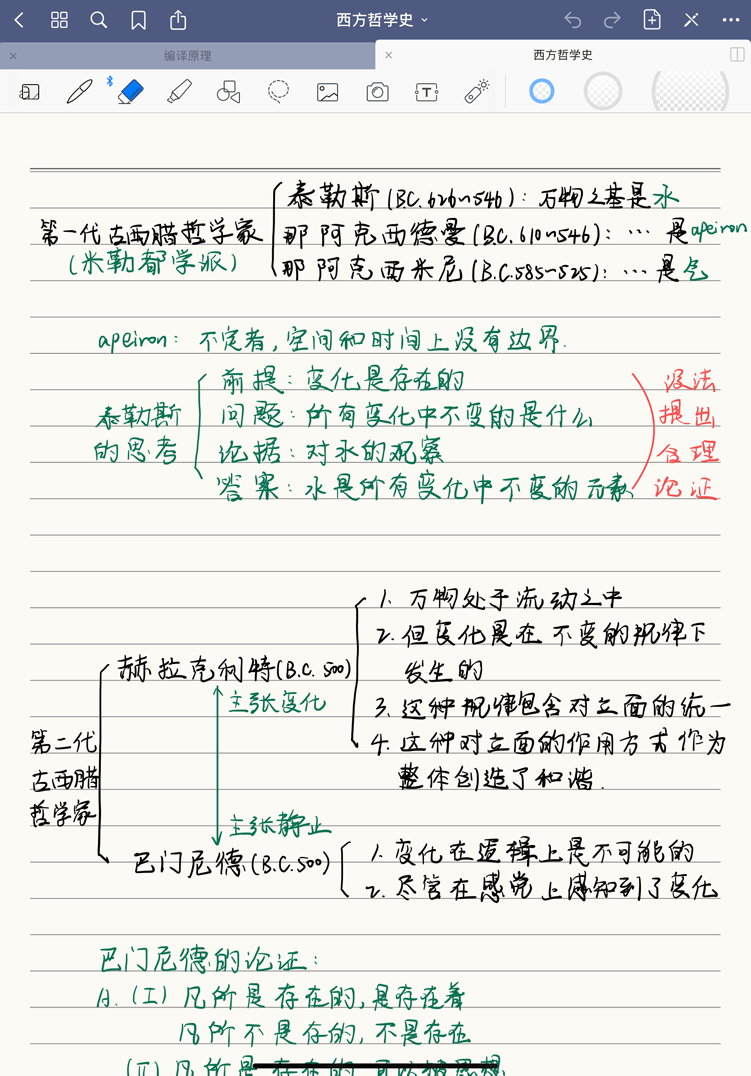 西方哲学史
编译原理
西方哲学史
泰勒斯(BC.626~546): 万物之基是水
第一代古西腊哲学家
那阿克西德曼(B.C.610~546): … 是apeiron
(米勒都学派)
那阿克西米尼(B.C.585~525): … 是气
apeiron: 不定者,空间和时间上没有边界.
前提: 变化是存在的
没法
泰勒斯
问题: 所有变化中不变的是什么
提出
的思考
论据: 对水的观察
合理
答案: 水是所有变化中不变的元素
论证
1. 万物处于流动之中
2. 但变化是在不变的规律下
赫拉克利特(B.C. 500)
发生的
主张变化
3. 这种规律包含对立面的统一
第二代
4. 这种对立面的作用方式作为
古西腊
整体创造了和谐.
哲学家
主张静止
巴门尼德(B.C.500)
1. 变化在逻辑上是不可能的
2. 尽管在感觉上感知到了变化
巴门尼德的论证:
A. (I) 凡所是存在的,是存在着
凡所不是存的,不是存在
(II) 凡所是存在的